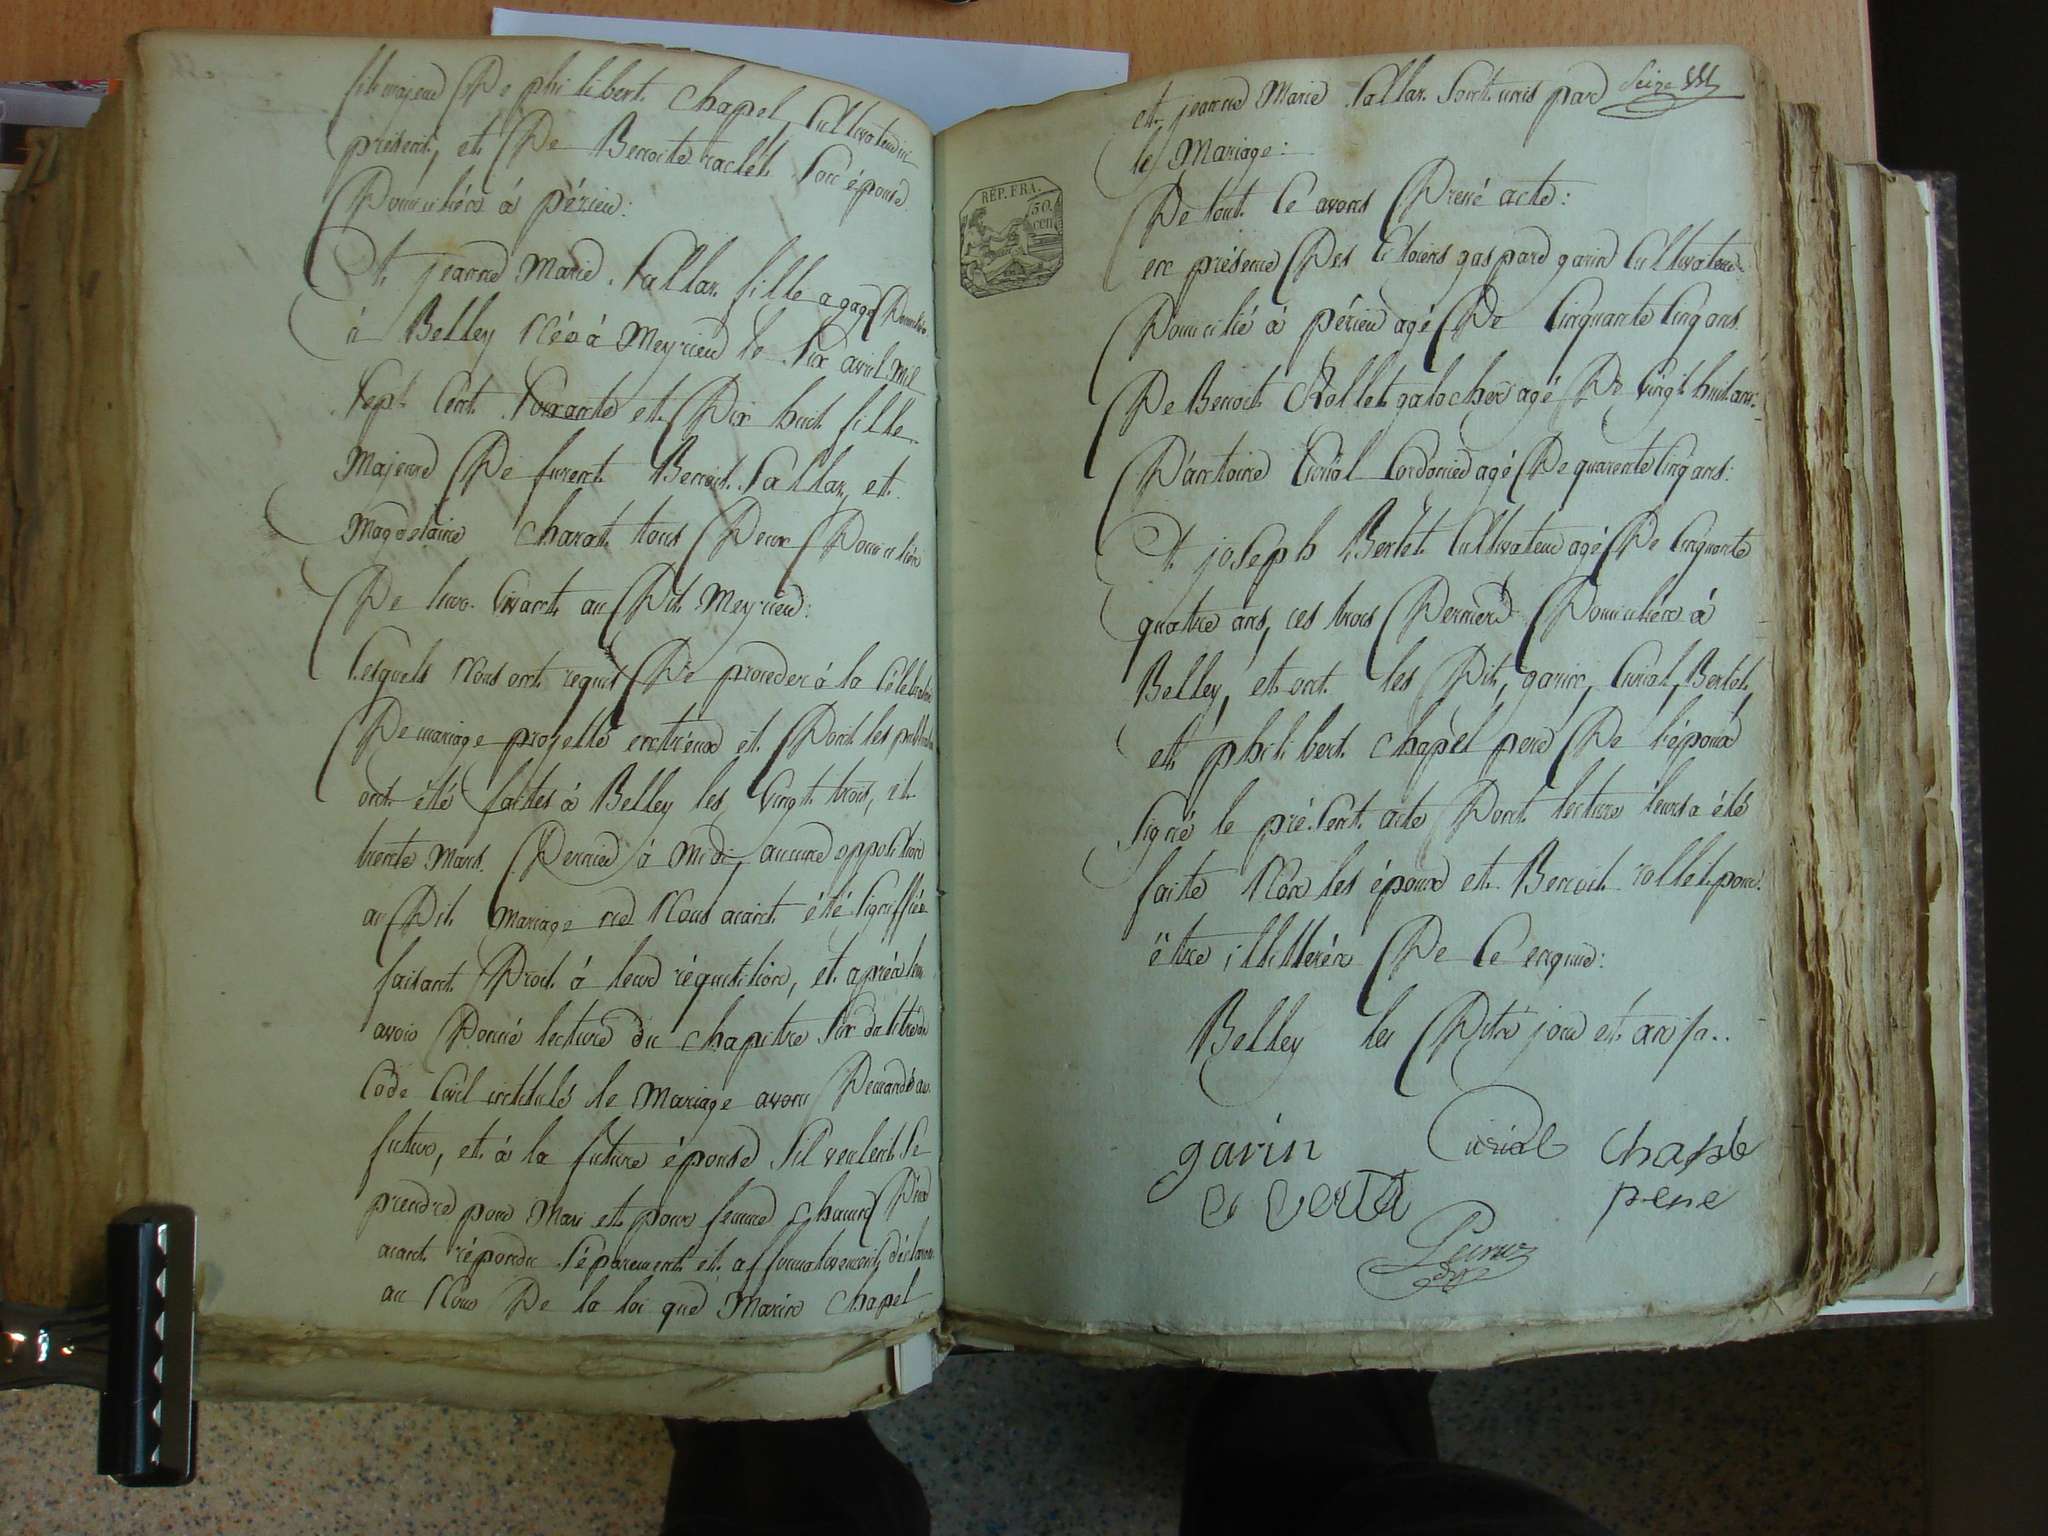 fils majeur De philibert chapel, Cultivateur ici
présent, et De Benoite raclet Son épouse
Domiciliés à périeu:
Et jeanne Marie Sallaz fille a gage Domiciliée
à Belley Née à Meyrieu le Six avril mil
Sept Cent Soixante et Dix huit fille
Majeure De furent Benoit Sallaz, et
Magdelaine charat tous Deux Domiciliés
De leur Vivant au Dit Meyrieu:
Lesquels Nous ont requis De proceder à la Célébration
De mariage projetté entr'eux et Dont les publications
ont été faites à Belley les Vingt trois, et
trente Mars Dernier à midi, aucune opposition
au Dit Mariage ne Nous aiant été Signiffiée
faisant Droit à leur réquisition, et après leur
avoir Donné lecture du chapitre Six du titre du
Code Civil intitulé le Mariage avons Demandé au
futur, et à la future épouse S'il veulent Se
prendre pour Mari et pour femme chacun D'eux
aiant répondu Séparement et affirmativement, déclarons
au Nom De la loi que Marin Chapel
Seize
et jeanne Marie Sallaz Sont unis par
le Mariage:
De tout Ce avons Dressé acte:
en présence Des Citoiens gaspard garin Cultivateur
Domicilié à périeu agé De Cinquante Cinq ans
De Benoit Rollet galocher agé De Vingt huit ans
D'antoine Curial Cordonier agé De quarente Cinq ans:
Et joseph Bertet Cultivateur agé De Cinquante
quatre ans, ces trois Derniers Domiciliés à
Belley, et ont les Dit, garin, Curial, Bertet,
et philibert chapel pere De l'époux
Signé le présent acte Dont lecture leurs a été
faite Non les époux et Benoit rollet pour
être illittérés De Ce enquis:
Belley les Dits jour et an
RÉP. FRA.
50.
cen
garin Curial chapel
pere